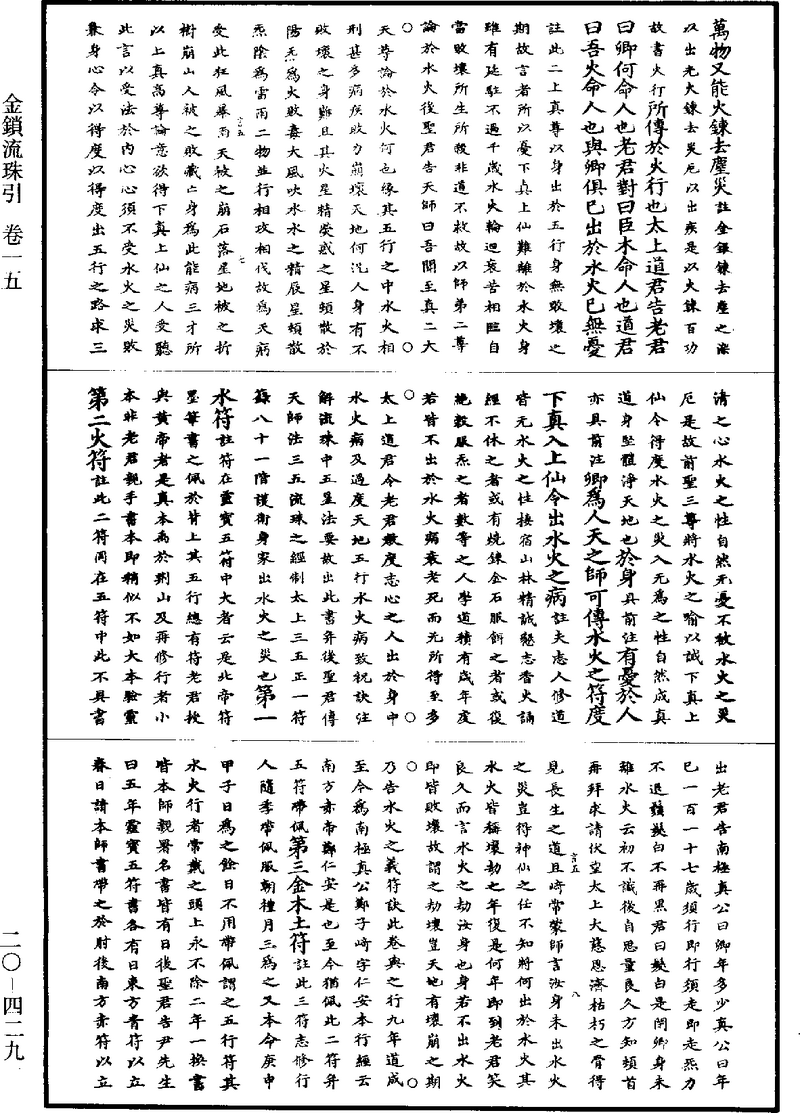 金鎖流珠引　卷一五
二〇－四二九
萬物又能火鍊去塵災註金銀鍊去塵之深
以出老火鍊去災厄以出疾是以火鍊百功
故書火行所傳於火行也太上道君告老君
曰卿何命人也老君對曰臣木命人也道君
曰吾火命人也與卿俱已出於水火已無憂
註此二上真尊以身出於五行身無敗壞之
期故言者所以憂下真上仙難離於水火身
雖有延駐不過千歲水火輪迴衰苦相臨自
當敗壞所生所殺非道不救故以師第二尊
論於水火後聖君告天師曰吾聞至真二大
天尊論於水火何也緣其五行之中水火相
刑甚多病疾敗力崩壞天地何況人身有不
敗壞之身難且其火星精熒惑之星頻散於
陽炁為火敗毒大風吹水水之精辰星頻散
炁陰為雷雨二物並行相攻相伐故為天病
言五　七
受此狂風暴雨天被之崩石落星地被之折
樹崩山人被之敗藏亡身為此能病三才所
以上真高尊論意欲得下真上仙之人受聽
此言以受法於內心心須不受水火之災敗
象身心令以得度以得度出五行之路求三
清之心水火之性自然无憂不被水火之災
厄是故前聖三尊將水火之喻以誡下真上
仙令得度水火之災入无為之性自然成真
道身坐體淨天地也於身具前注有憂於人
亦具前注卿為人天之師可傳水火之符度
下真入上仙令出水火之病註夫志人修道
皆无水火之性接宿山林精誠懇志香火誦
經不休之者或有燒鍊金石服餌之者或復
絕穀服炁之者數等之人學道積有歲年度
若皆不出於水火病衰老死而无所得至多
太上道君令老君教度志心之人出於身中
水火病及過度天地五行水火病致祝訣注
解流珠中五星法要故出此書并後聖君傳
天師法三五流珠之經制太上三五正一符
籙八十一階護衛身家出水火之災也第一
水符註符在靈寶五符中大者云是北帝符
墨筆書之佩於背上其五行總有符老君授
與黃帝者是真本高於荆山及再修行者小
本非老君親手書本即稍似不如大本驗靈
第二火符註此二符同在五符中此不具書
出老君告南極真公曰卿年多少真公曰年
已一百一十七歲須行即行須走即走炁力
不退鬚髮白不再黑君曰髮白是閈卿身未
離水火云初不識後自思量良久方知頓首
再拜求請伏望太上大慈恩濟枯朽之骨得
言五　八
見長生之道且崎常蒙師言汝身未出水火
之災豈得神仙之任不知將何出於水火其
水火皆稱壞劫之年復是何年即到老君笑
良久而言水火之劫汝身也身若不出水火
即皆敗壞故謂之劫壞豈天地有壞崩之期
乃告水火之義符訣此卷與之行九年道成
至今為南極真公鄭子崎字仁安本行經云
南方赤帝鄭仁安是也至今猶佩此二符并
五符帶佩第三金木土符註此三符志修行
人隨季帶佩服朝禮月三為之又本命庚申
甲子日為之餘日不用帶佩謂之五行符其
水火行者常戴之頭上永不除二年一換書
皆本師親署名書皆有日後聖君告尹先生
曰五年靈寶五符書各有日東方青符以立
春日請本師書帶之於肘後南方赤符以立